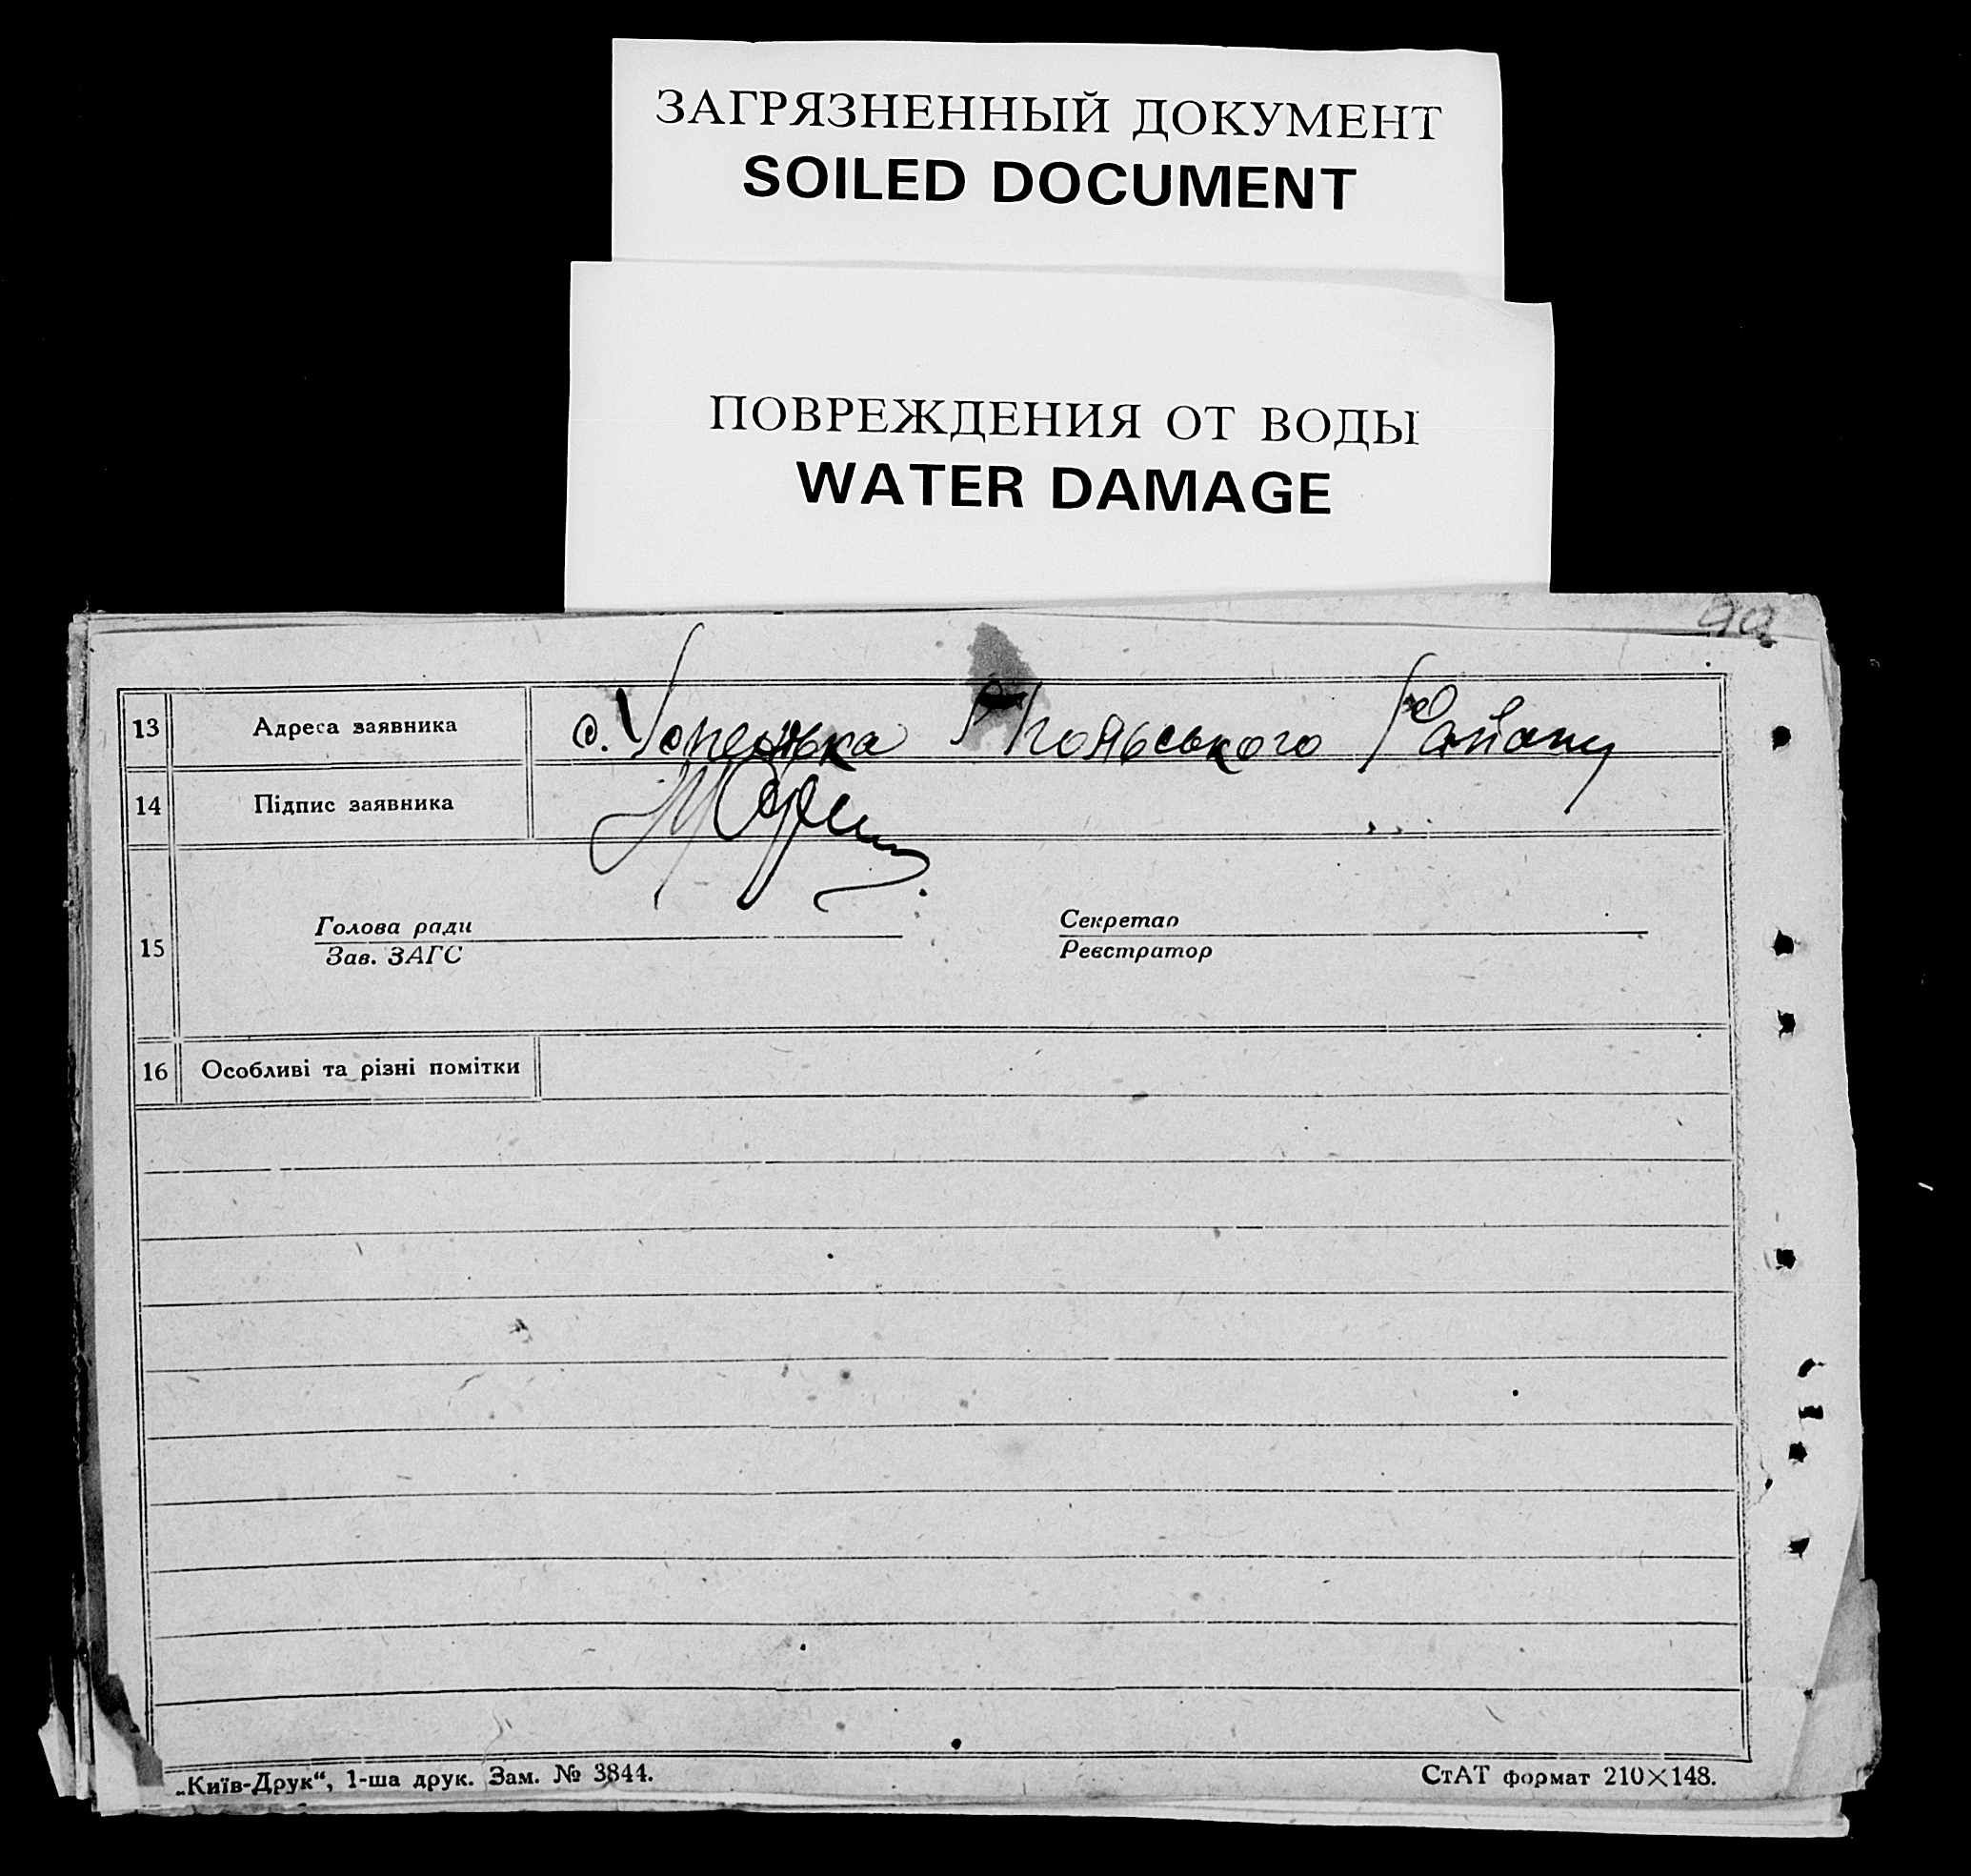 ЗАГРЯЗНЕННЫЙ ДОКУМЕНТ
SOILED DOCUMENT
ПОВРЕЖДЕНИЯ ОТ ВОДЫ
WATER DAMAGE
13 Адреса заявника с. Району
14 Підпис заявника
Голова ради Секретар
15
Зав. ЗАГС Реєстратор
16 Особливі та різні помітки
„Київ-Друк“, 1-ша друк. Зам. № 3844. СтАТ формат 210×148.